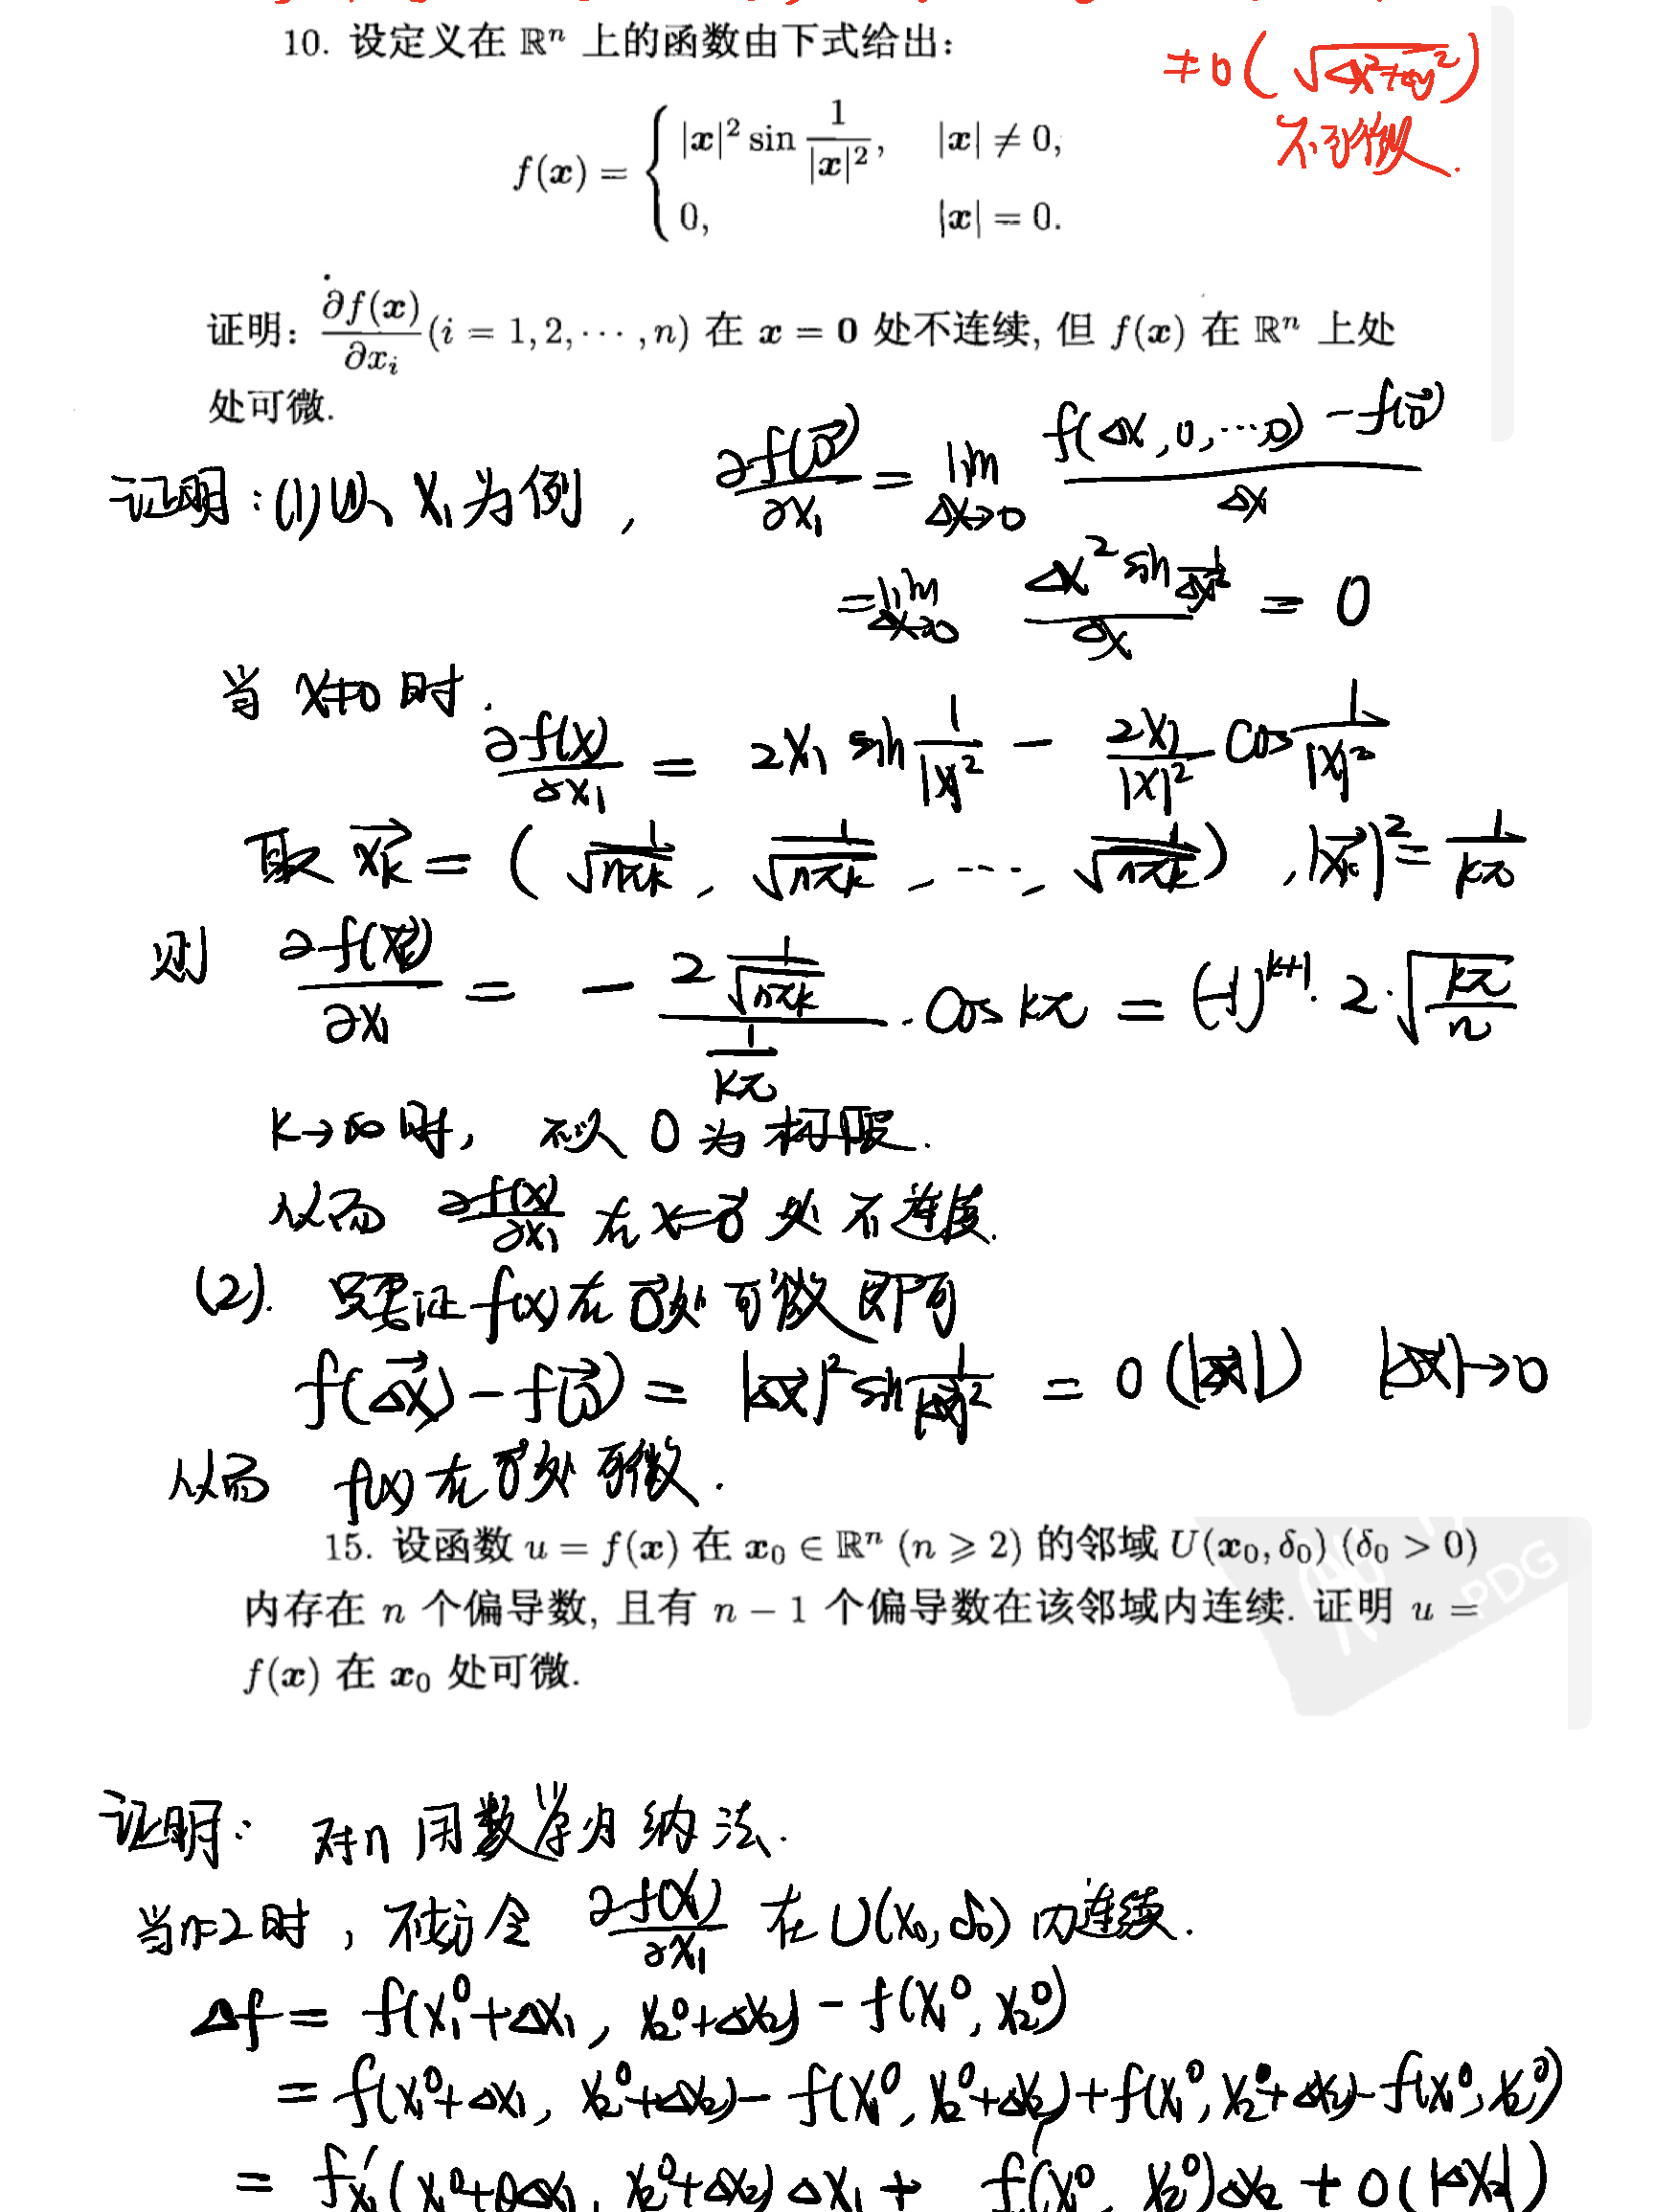 10. 设定义在 ℝⁿ 上的函数由下式给出:
≠o(√(Δx²+Δy²))
不可微.
f(x) = { |x|² sin 1/|x|², |x| ≠ 0,
0, |x| = 0.
证明: ∂f(x)/∂xᵢ (i = 1, 2, ⋯, n) 在 x = 0 处不连续, 但 f(x) 在 ℝⁿ 上处
处可微.
证明:(1)以 x₁为例, ∂f(0⃗)/∂x₁ = lim_{Δx→0} (f(Δx, 0, ⋯, 0) - f(0⃗))/Δx
= lim_{Δx→0} (Δx² sin 1/Δx²)/Δx = 0
当 x≠0 时.
∂f(x)/∂x₁ = 2x₁ sin 1/|x|² - 2x₁/|x|² cos 1/|x|²
取 x⃗ₖ = (1/√(nπk), 1/√(nπk), ⋯, 1/√(nπk)), |x⃗ₖ|² = 1/kπ
则 ∂f(x⃗ₖ)/∂x₁ = - (2 1/√(nπk))/(1/kπ) · cos kπ = (-1)^{k+1} · 2 · √(kπ/n)
k→∞时, 不以 0 为极限.
从而 ∂f(x)/∂x₁ 在 x=0⃗ 处 不连续.
(2). 只要证 f(x) 在 0⃗处 可微 即可
f(Δx⃗) - f(0⃗) = |Δx⃗|² sin 1/|Δx⃗|² = o(|Δx⃗|) |Δx⃗|→0
从而 f(x) 在 0⃗处 可微.
15. 设函数 u = f(x) 在 x₀ ∈ ℝⁿ (n ⩾ 2) 的邻域 U(x₀, δ₀) (δ₀ > 0)
内存在 n 个偏导数, 且有 n − 1 个偏导数在该邻域内连续. 证明 u =
f(x) 在 x₀ 处可微.
PDG
证明: 对n 用数学归纳法.
当n=2时, 不妨令 ∂f(x)/∂x₁ 在 U(x₀, δ₀) 内连续.
Δf = f(x₁⁰+Δx₁, x₂⁰+Δx₂) - f(x₁⁰, x₂⁰)
= f(x₁⁰+Δx₁, x₂⁰+Δx₂) - f(x₁⁰, x₂⁰+Δx₂) + f(x₁⁰, x₂⁰+Δx₂) - f(x₁⁰, x₂⁰)
= f'x₁(x₁⁰+θΔx₁, x₂⁰+Δx₂)Δx₁ + f'(x₁⁰, x₂⁰)Δx₂ + o(|Δx₂|)